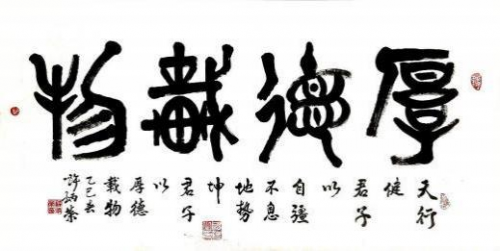 厚德載物
天行
健
君子
以
自強
不息
地勢
坤
君子
以
厚德
載物
乙巳春